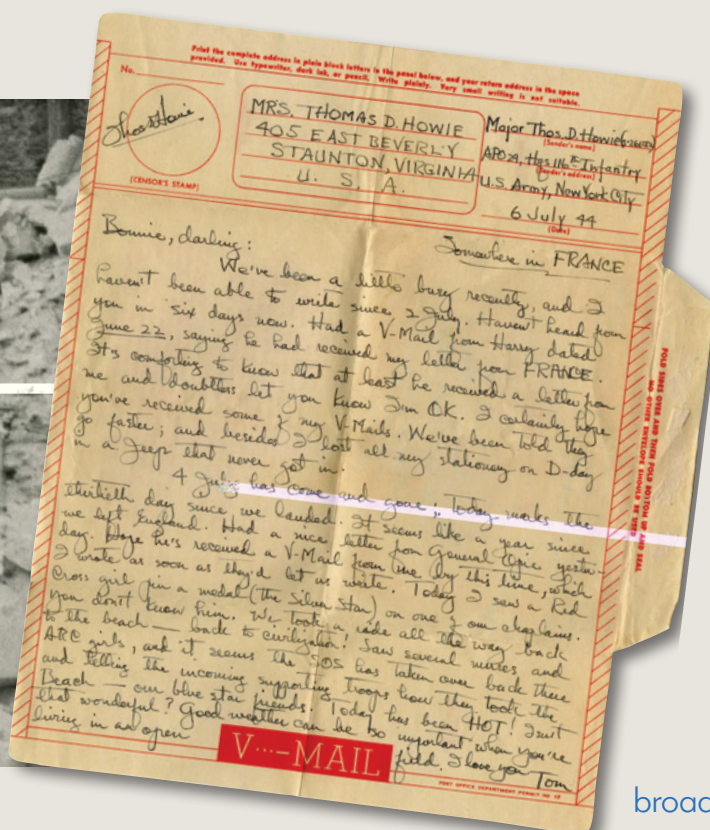 Print the complete address in plain block letters in the panel below, and your return address in the space
provided. Use typewriter, dark ink, or pencil. Write plainly. Very small writing is not suitable.
No.
Thos D Howie
(CENSOR'S STAMP)
MRS. THOMAS D. HOWIE
405 EAST BEVERLY
STAUNTON, VIRGINIA
U. S. A.
Major Thos. D. Howie
(Sender's name)
APO 29, Hqs 116th Infantry
(Sender's address)
U.S. Army, New York City
6 July 44
(Date)
Somewhere in FRANCE
Bonnie, darling:
We've been a little busy recently, and I
haven't been able to write since 2 July. Haven't heard from
you in six days now. Had a V-Mail from Harry dated
June 22, saying he had received my letter from FRANCE.
It's comforting to know that at least he received a letter from
me and doubtless let you know I'm OK. I certainly hope
you've received some of my V-Mails. We've been told they
go faster; and besides I lost all my stationary on D-day
in a jeep that never got in.
4 July has come and gone; Today marks the
thirtieth day since we landed. It seems like a year since
we left England. Had a nice letter from General Opie yester
day. Hope he's received a V-Mail from me by this time, which
I wrote as soon as they'd let us write. Today I saw a Red
Cross girl pin a medal (the Silver Star) on one of our chaplains.
You don't know him. We took a ride all the way back
to the beach — back to civilization. Saw several nurses and
ARC girls, and it seems the SOS has taken over back there
and telling the incoming supporting troops how they took the
Beach — our blue star friends. Today has been HOT! Isn't
that wonderful? Good weather can be so important when you're
living in an open field. I love you Tom
V···-MAIL
POST OFFICE DEPARTMENT PERMIT NO. 18
FOLD SIDES OVER AND THEN FOLD BOTTOM UP AND SEAL
NO OTHER ENVELOPE SHOULD BE USED
broad